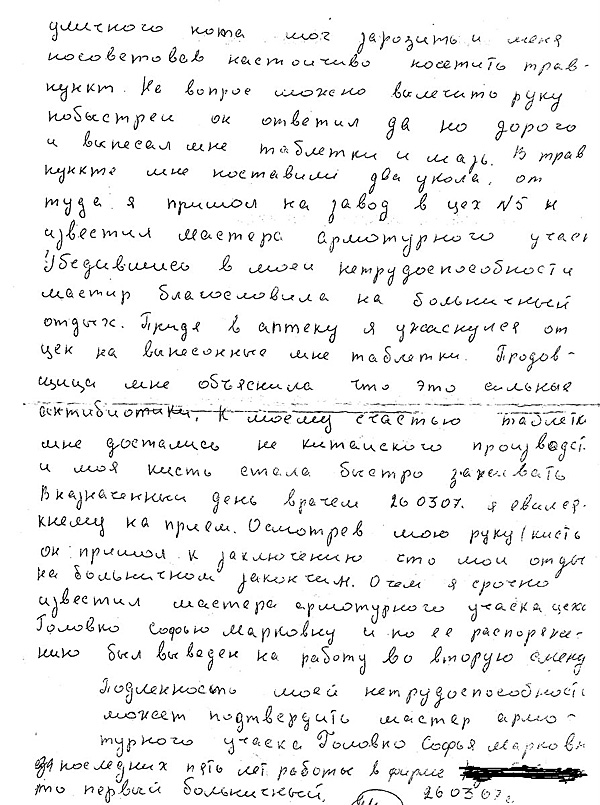 уличного кота мог зарозить и меня
посоветовав настойчиво посетить трав-
пункт. На вопрос можно вылечить руку
побыстрей он ответил да но дорого
и выпесал мне таблетки и мазь. В трав
пункте мне поставили два укола, от
туда я пришол на завод в цех N5 и
известил мастера армотурного учас
Убедившись в моей нетрудоспособности
мастир благословила на больничный
отдых. Придя в аптеку я ужаснулся от
цен на выпесонные мне таблетки. Продов-
щица мне объяснила что это сильные
антибиотики, к моему счастью таблетк
мне достались не китайского производст
и моя кисть стала быстро заживать
В назначенный день врачем 26 03 07. я евился.
кнему на прием. Осмотрев мою руку/кисть
он пришол к заключению что мой отды
на больничном закончин. О чем я срочно
известил мастера армотурного учаска цеха
Головко Софью Марковну и по ее распореже-
нию был выведен на работу во вторую смену
Подленность моей нетрудоспособность
может подтвердить мастер армо-
турного учаска Головко Софья Марковн
за последних пять лет работы в фирме
то первый больничный. 26 03 07 г.